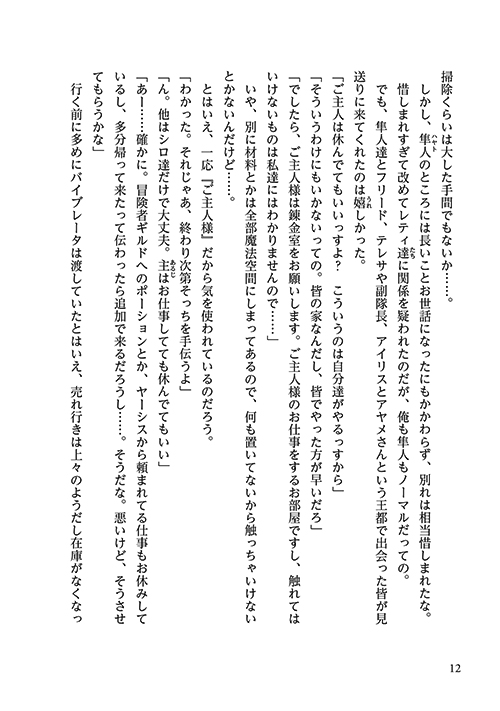 掃除くらいは大した手間でもないか……。
しかし、隼人のところには長いことお世話になったにもかかわらず、別れは相当惜しまれたな。
惜しまれすぎて改めてレティ達に関係を疑われたのだが、俺も隼人もノーマルだっての。
でも、隼人達とフリード、テレサや副隊長、アイリスとアヤメさんという王都で出会った皆が見
送りに来てくれたのは嬉しかった。
「ご主人は休んでてもいいっすよ？　こういうのは自分達がやるっすから」
「そういうわけにもいかないっての。皆の家なんだし、皆でやった方が早いだろ」
「でしたら、ご主人様は錬金室をお願いします。ご主人様のお仕事をするお部屋ですし、触れては
いけないものは私達にはわかりませんので……」
いや、別に材料とかは全部魔法空間にしまってあるので、何も置いてないから触っちゃいけない
とかないんだけど……。
とはいえ、一応『ご主人様』だから気を使われているのだろう。
「わかった。それじゃあ、終わり次第そっちを手伝うよ」
「ん。他はシロ達だけで大丈夫。主はお仕事してても休んでてもいい」
「あー……確かに。冒険者ギルドへのポーションとか、ヤーシスから頼まれてる仕事もお休みして
いるし、多分帰って来たって伝わったら追加で来るだろうし……。そうだな。悪いけど、そうさせ
てもらうかな」
行く前に多めにバイブレータは渡していたとはいえ、売れ行きは上々のようだし在庫がなくなっ
12